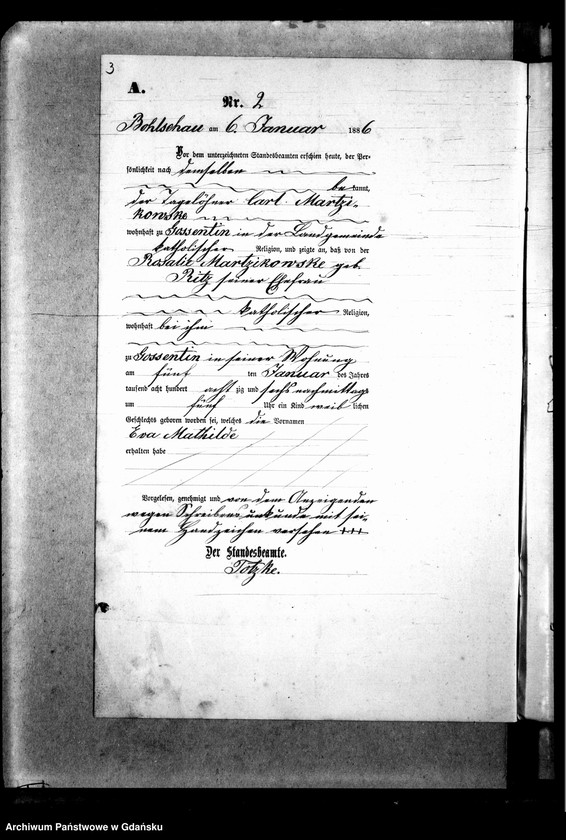 3
A.
Nr. 2
Bohlschau am 6. Januar 1886
Vor dem unterzeichneten Standesbeamten erschien heute, der Per-
sönlichkeit nach demselben
be kannt,
der Tagelöhner Carl Martzi-
kowske
wohnhaft zu Gossentin in der Landgemeinde
katholischer Religion, und zeigte an, daß von der
Rosalie Martzikowske geb.
Ritz seiner Ehefrau
katholischer Religion,
wohnhaft bei ihm
zu Gossentin in seiner Wohnung
am fünf ten Januar des Jahres
tausend acht hundert acht zig und sechs nachmittags
um fünf Uhr ein Kind weib lichen
Geschlechts geboren worden sei, welches die Vornamen
Eva Mathilde
erhalten habe
Vorgelesen, genehmigt und von dem Anzeigenden
wegen Schreibensunkunde mit sei-
nem Handzeichen versehen +++
Der Standesbeamte.
Totzke.
Archiwum Państwowe w Gdańsku